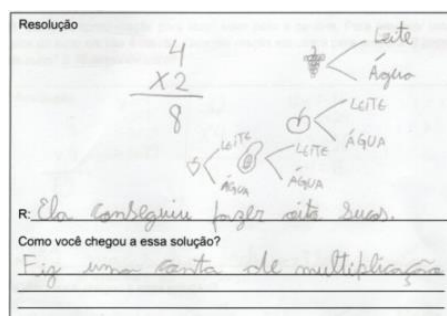 Resolução
4
X2
8
Leite
Água
LEITE
ÁGUA
LEITE
ÁGUA
LEITE
ÁGUA
R: Ela conseguiu fazer oito sucos.
Como você chegou a essa solução?
Fiz uma conta de multiplicação